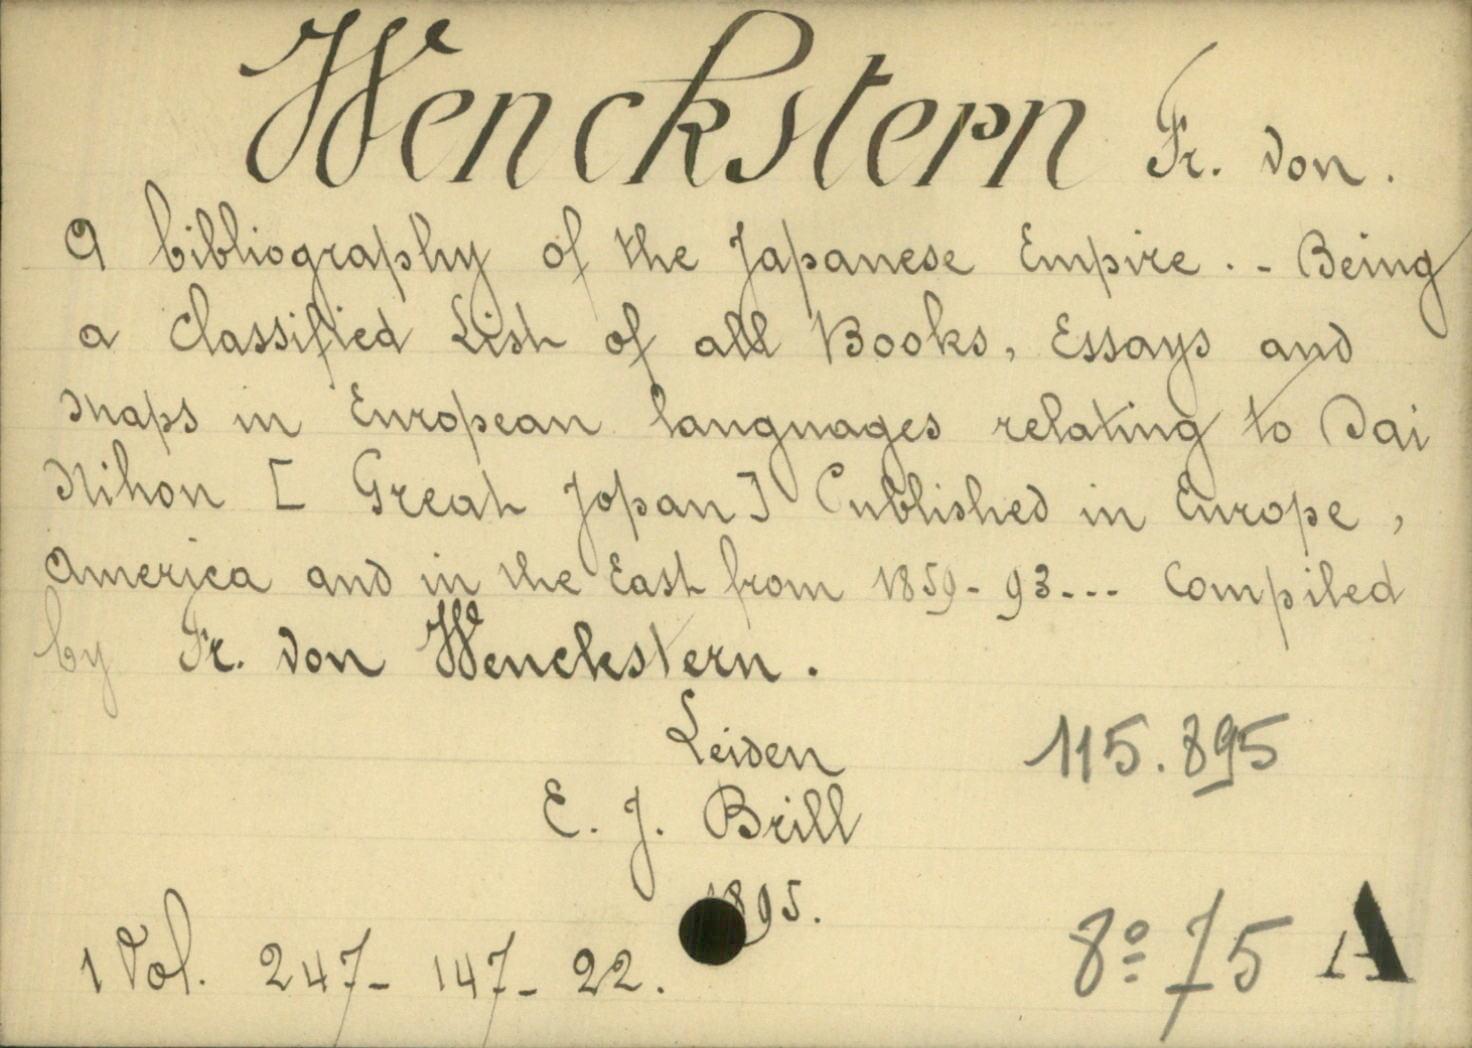 Wenckstern Fr. von.
A bibliography of the Japanese Empire. - Being
a Classified List of all Books, Essays and
Maps in European languages relating to Dai
Nihon [ Great Japan ] Published in Europe,
America and in the East from 1859-93--- Compiled
by Fr. von Wenckstern.
Leiden
115.895
E. J. Brill
1895.
1 Vol. 247- 147- 22.
8º 75 A